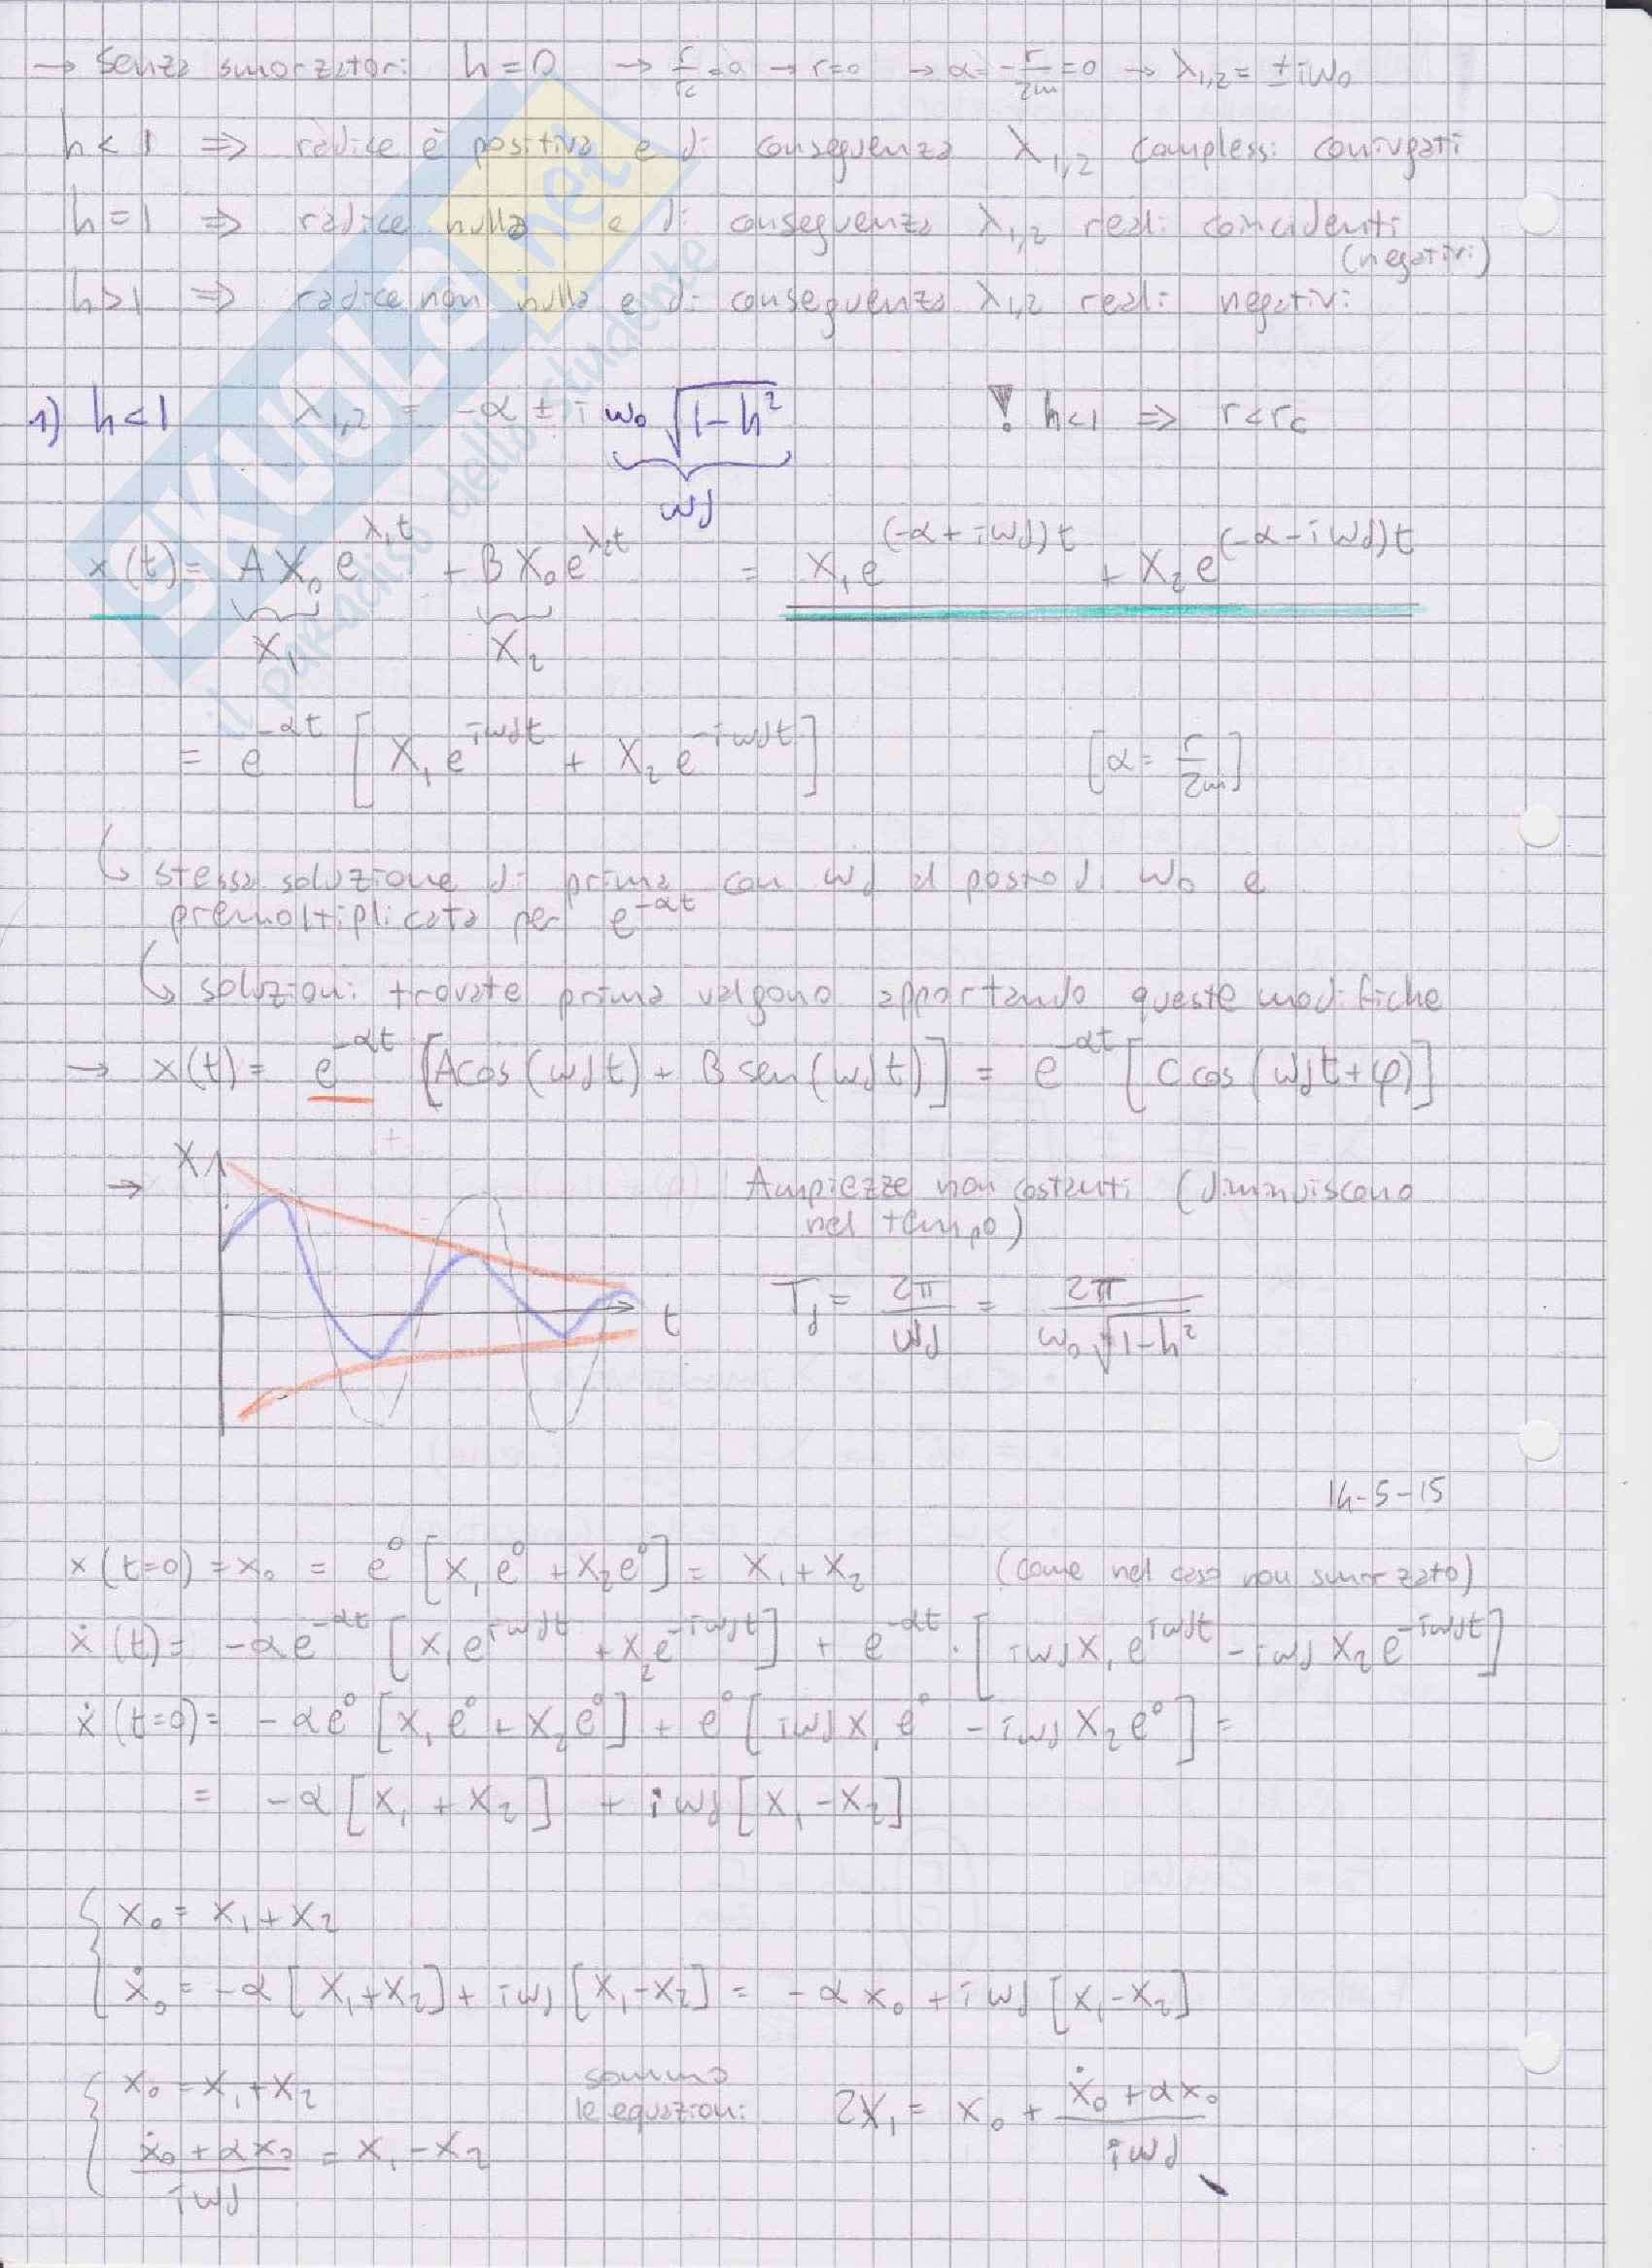 → Senza smorzatori h = 0 → r/rc = 0 → r = 0 → α = -r/2m = 0 → λ1,2 = ± iω0
h < 1 ⇒ radice è positiva e di conseguenza λ1,2 complessi coniugati
h = 1 ⇒ radice nulla e di conseguenza λ1,2 reali coincidenti
(negativi)
h > 1 ⇒ radice non nulla e di conseguenza λ1,2 reali negativi
1) h < 1 λ1,2 = -α ± i ω0 √(1-h²) ! h<1 ⇒ r < rc
ωd
x(t) = A X0 e^(λ1t) + B X0 e^(λ2t) = X1 e^((-α+iωd)t) + X2 e^((-α-iωd)t)
X1 X2
= e^(-αt) [X1 e^(iωdt) + X2 e^(-iωdt)] [α = r/2m]
↳ stessa soluzione di prima con ωd al posto di ω0 e
premoltiplicata per e^(-αt)
↳ soluzioni trovate prima valgono apportando queste modifiche
→ x(t) = e^(-αt) [A cos(ωdt) + B sen(ωdt)] = e^(-αt) [C cos(ωdt+φ)]
→ X
t
Ampiezze non costanti (diminuiscono
nel tempo)
Td = 2π/ωd = 2π/(ω0√(1-h²))
14-5-15
x(t=0) = x0 = e⁰ [X1 e⁰ + X2 e⁰] = X1 + X2 (come nel caso non smorzato)
ẋ(t) = -αe^(-αt) [X1 e^(iωdt) + X2 e^(-iωdt)] + e^(-αt) · [iωd X1 e^(iωdt) - iωd X2 e^(-iωdt)]
ẋ(t=0) = -αe⁰ [X1 e⁰ + X2 e⁰] + e⁰ [iωd X1 e⁰ - iωd X2 e⁰] =
= -α [X1 + X2] + iωd [X1 - X2]
{ x0 = X1 + X2
ẋ0 = -α [X1+X2] + iωd [X1-X2] = -αx0 + iωd [X1-X2]
{ x0 = X1 + X2
(ẋ0 + αx0)/(iωd) = X1 - X2
sommo
le equazioni
2X1 = x0 + (ẋ0 + αx0)/(iωd)
SKUOLA.net
il paradiso dello studente